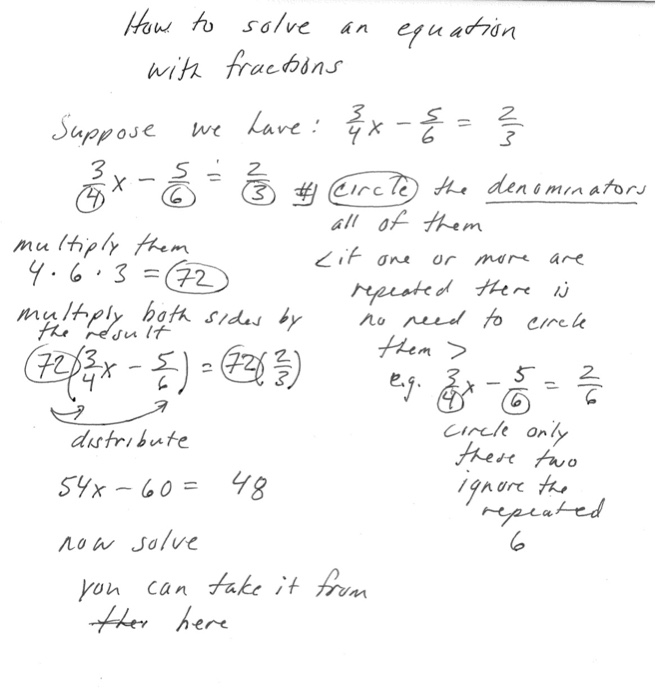 How to solve an equation
with fractions
Suppose we have: 3/4 x - 5/6 = 2/3
3/4 x - 5/6 = 2/3 # circle the denominators
all of them
<if one or more are
repeated there is
no need to circle
them>
e.g. 3/4 x - 5/6 = 2/6
circle only
these two
ignore the
repeated
6
multiply them
4 · 6 · 3 = 72
multiply both sides by
the result
72(3/4 x - 5/6) = 72(2/3)
distribute
54x - 60 = 48
now solve
you can take it from
ther here